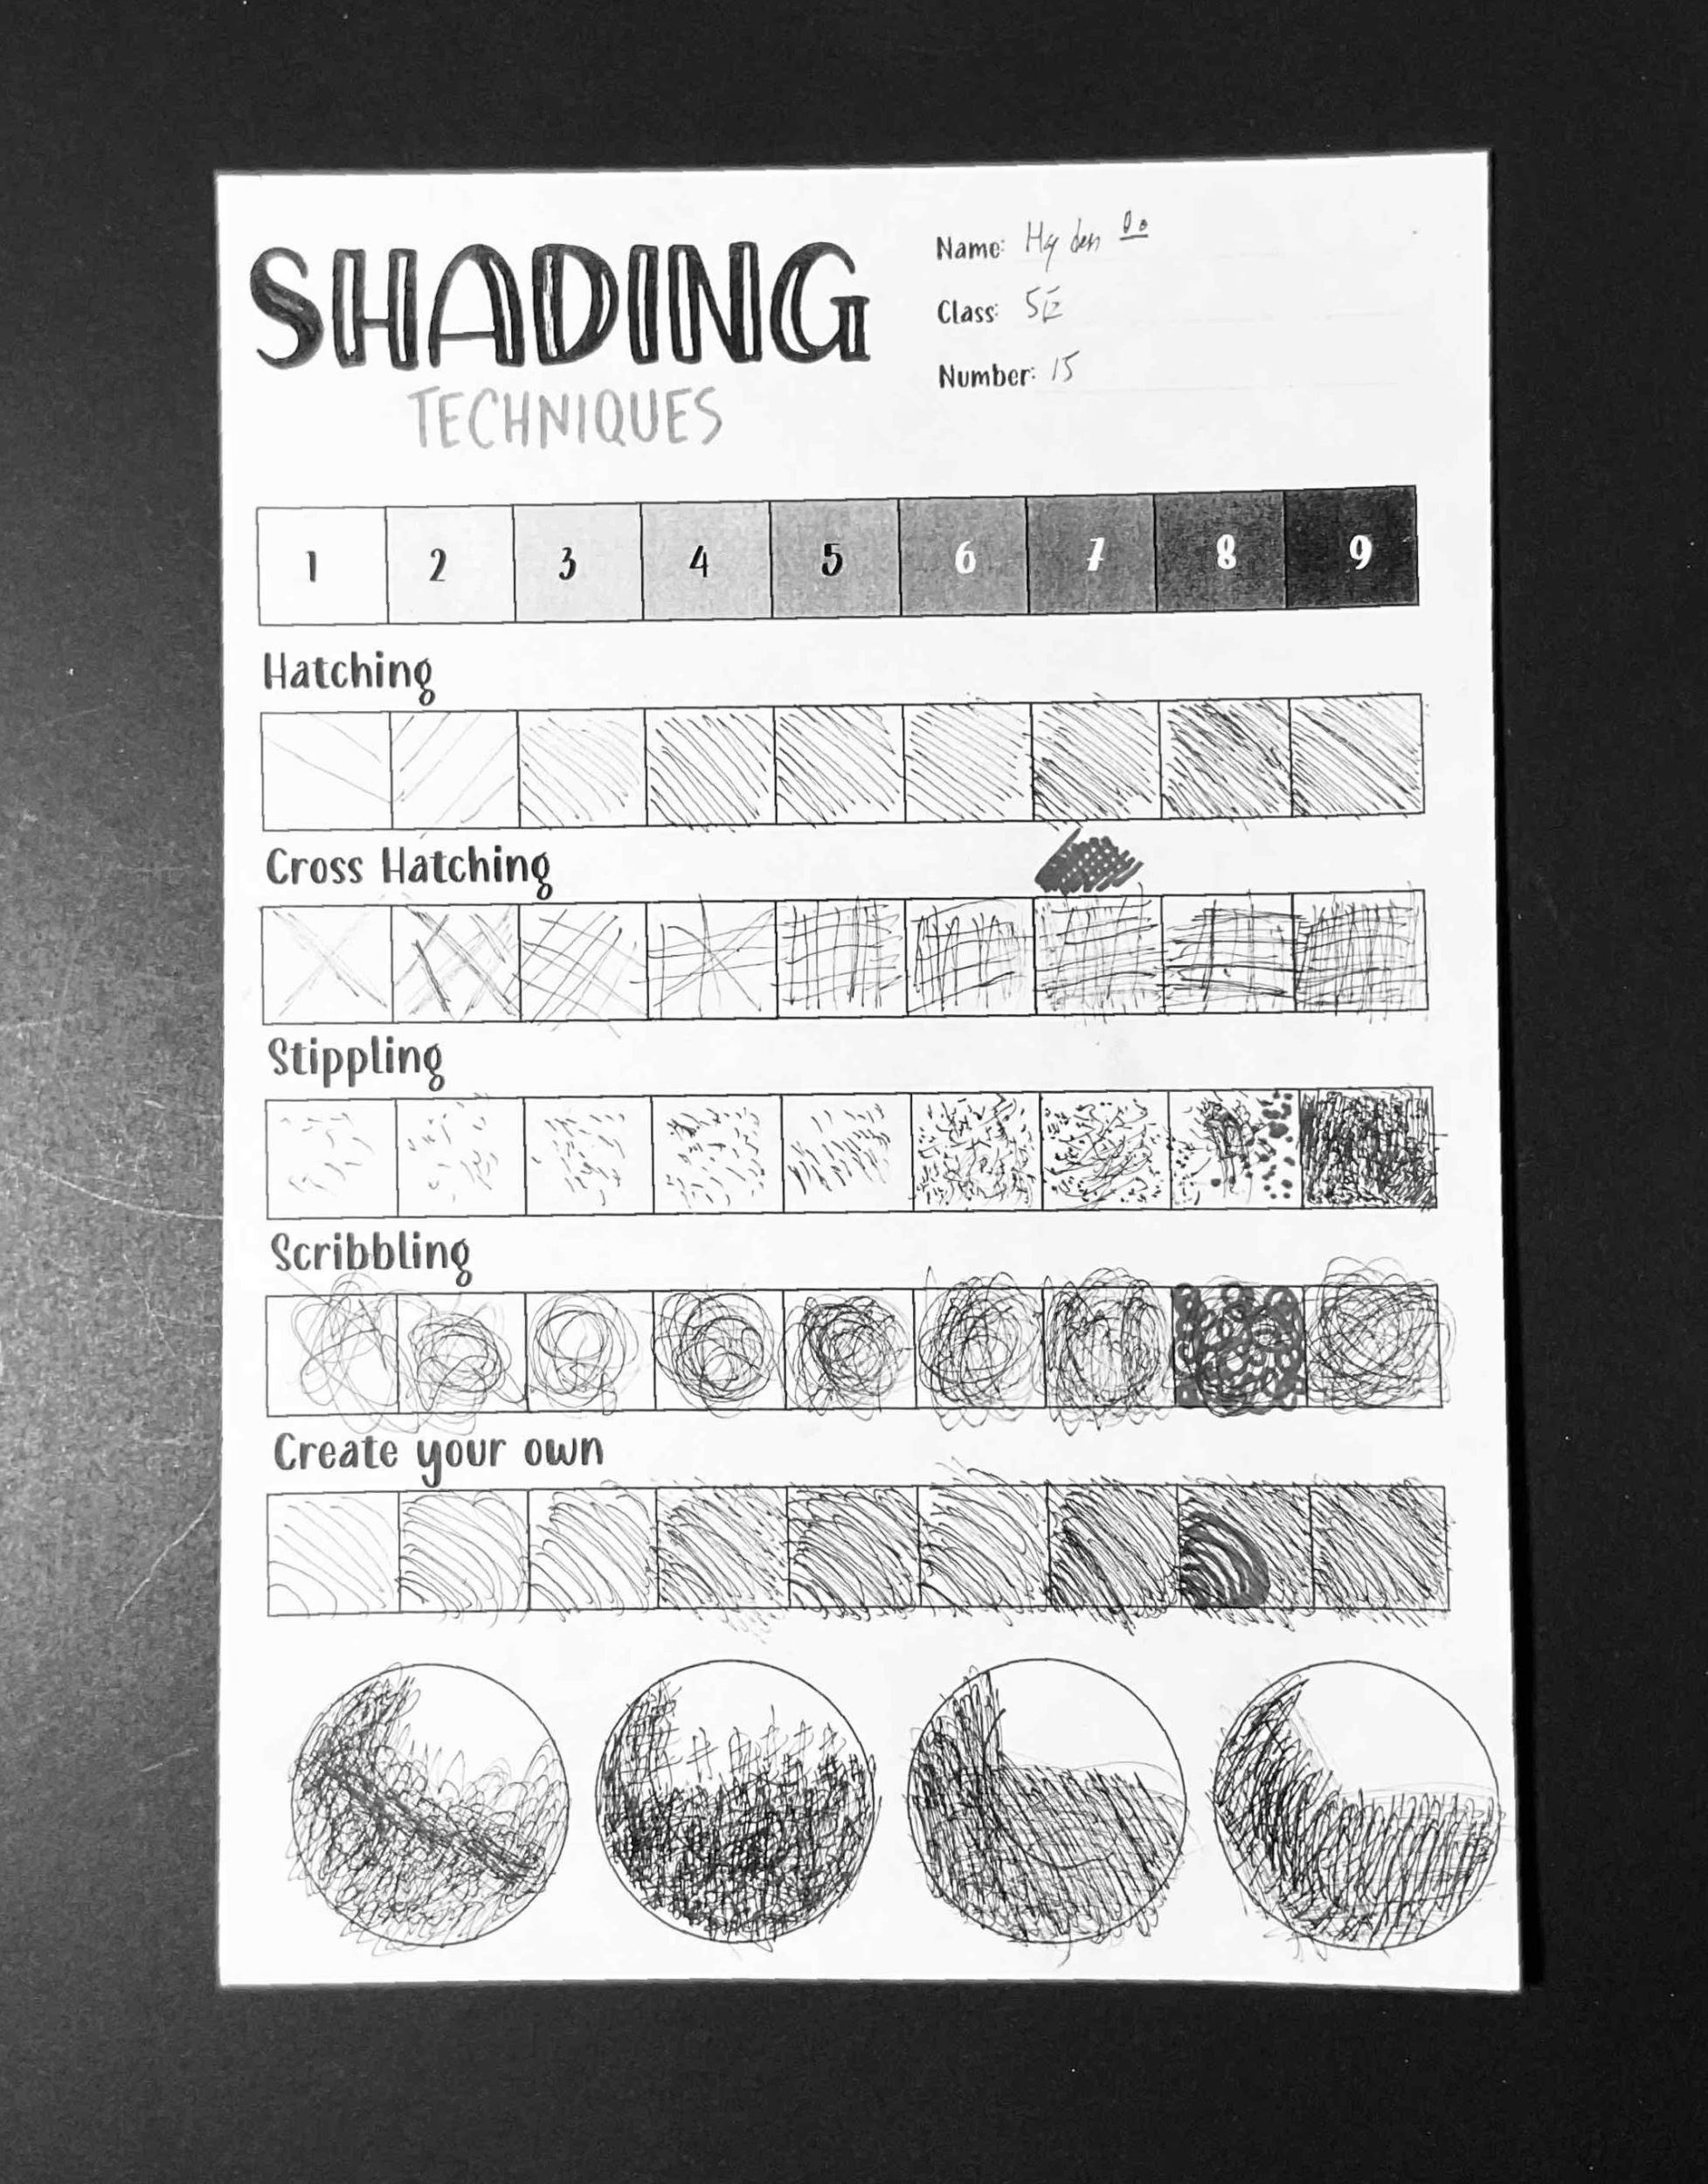 SHADING
TECHNIQUES
Name: Hayden Do
Class: 5E
Number: 15
1 2 3 4 5 6 7 8 9
Hatching
Cross Hatching
Stippling
Scribbling
Create your own